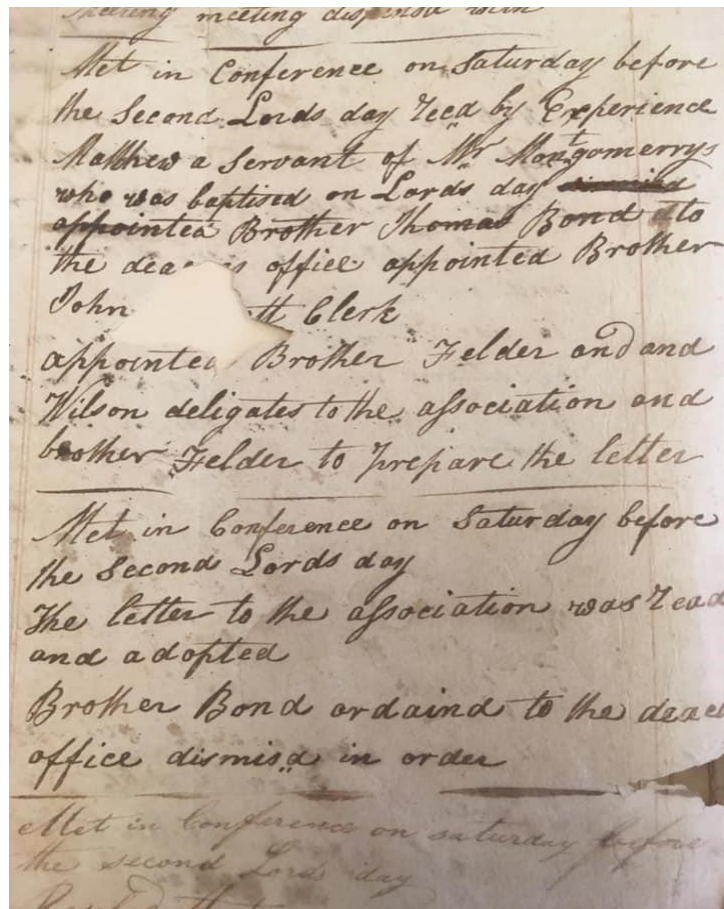 meeting dispensd with
Met in Conference on Saturday before
the Second Lords day Recd by Experience
Matthew a Servant of Mr Montgomerrys
who was baptised on Lords day
appointed Brother Thomas Bond to
the office appointed Brother
John Clerk
appointed Brother Felder and and
Wilson deligates to the association and
brother Felder to prepare the letter
Met in Conference on Saturday before
the Second Lords day
The letter to the association was read
and adopted
Brother Bond ordaind to the
office dismisd in order
Met in Conference on saturday before
the second Lords day